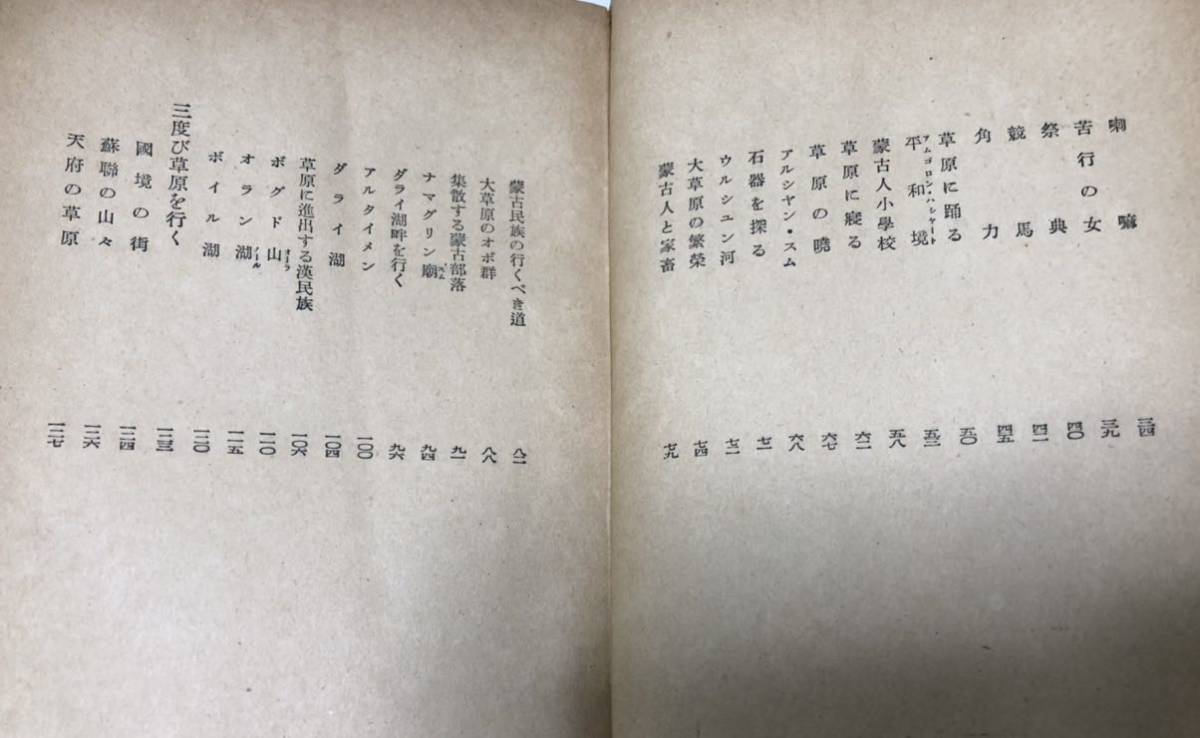 喇嘛 三四
苦行の女 三九
祭典 四〇
競馬 四一
角力 四五
草原に踊る 五〇
平和境 五三
蒙古人小學校 五八
草原に寢る 六二
草原の曉 六七
アルシヤン・スム 六八
石器を探る 七一
ウルシユン河 七二
大草原の繁榮 七四
蒙古人と家畜 七九
蒙古民族の行くべき道 八一
大草原のオボ群 八八
集散する蒙古部落 九一
ナマグリン廟スム 九四
ダライ湖畔を行く 九六
アルタイメン 一〇〇
ダライ湖 一〇四
草原に進出する漢民族 一〇六
ボグド山オーラ 一一〇
オラン湖ノール 一一五
ボイル湖 一二〇
三度び草原を行く 一二三
國境の街 一二四
蘇聯の山々 一二六
天府の草原 一二七